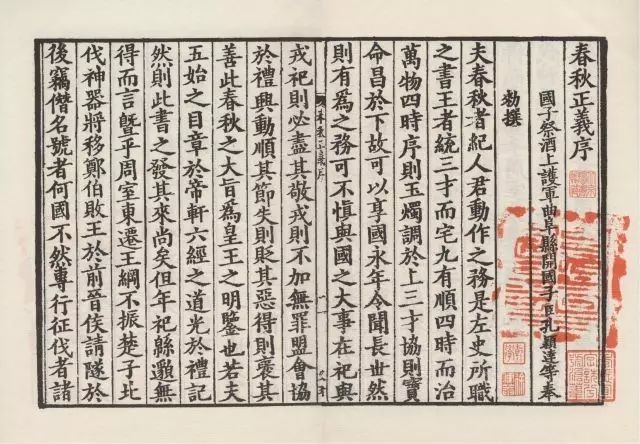 春秋正義序
國子祭酒上護軍曲阜縣開國子臣孔穎達等奉
勑撰
夫春秋者紀人君動作之務是左史所職
之書王者統三才而宅九有順四時而治
萬物四時序則玉燭調於上三才協則寶
命昌於下故可以享國永年令聞長世然
則有爲之務可不慎與國之大事在祀與
戎祀則必盡其敬戎則不加無罪盟會協
於禮興動順其節失則貶其惡得則襃其
善此春秋之大旨爲皇王之明鑒也若夫
五始之目章於帝軒六經之道光於禮記
然則此書之發其來尚矣但年祀緜邈無
得而言曁平周室東遷王綱不振楚子北
伐神器將移鄭伯敗王於前晉侯請隧於
後竊僭名號者何國不然專行征伐者諸